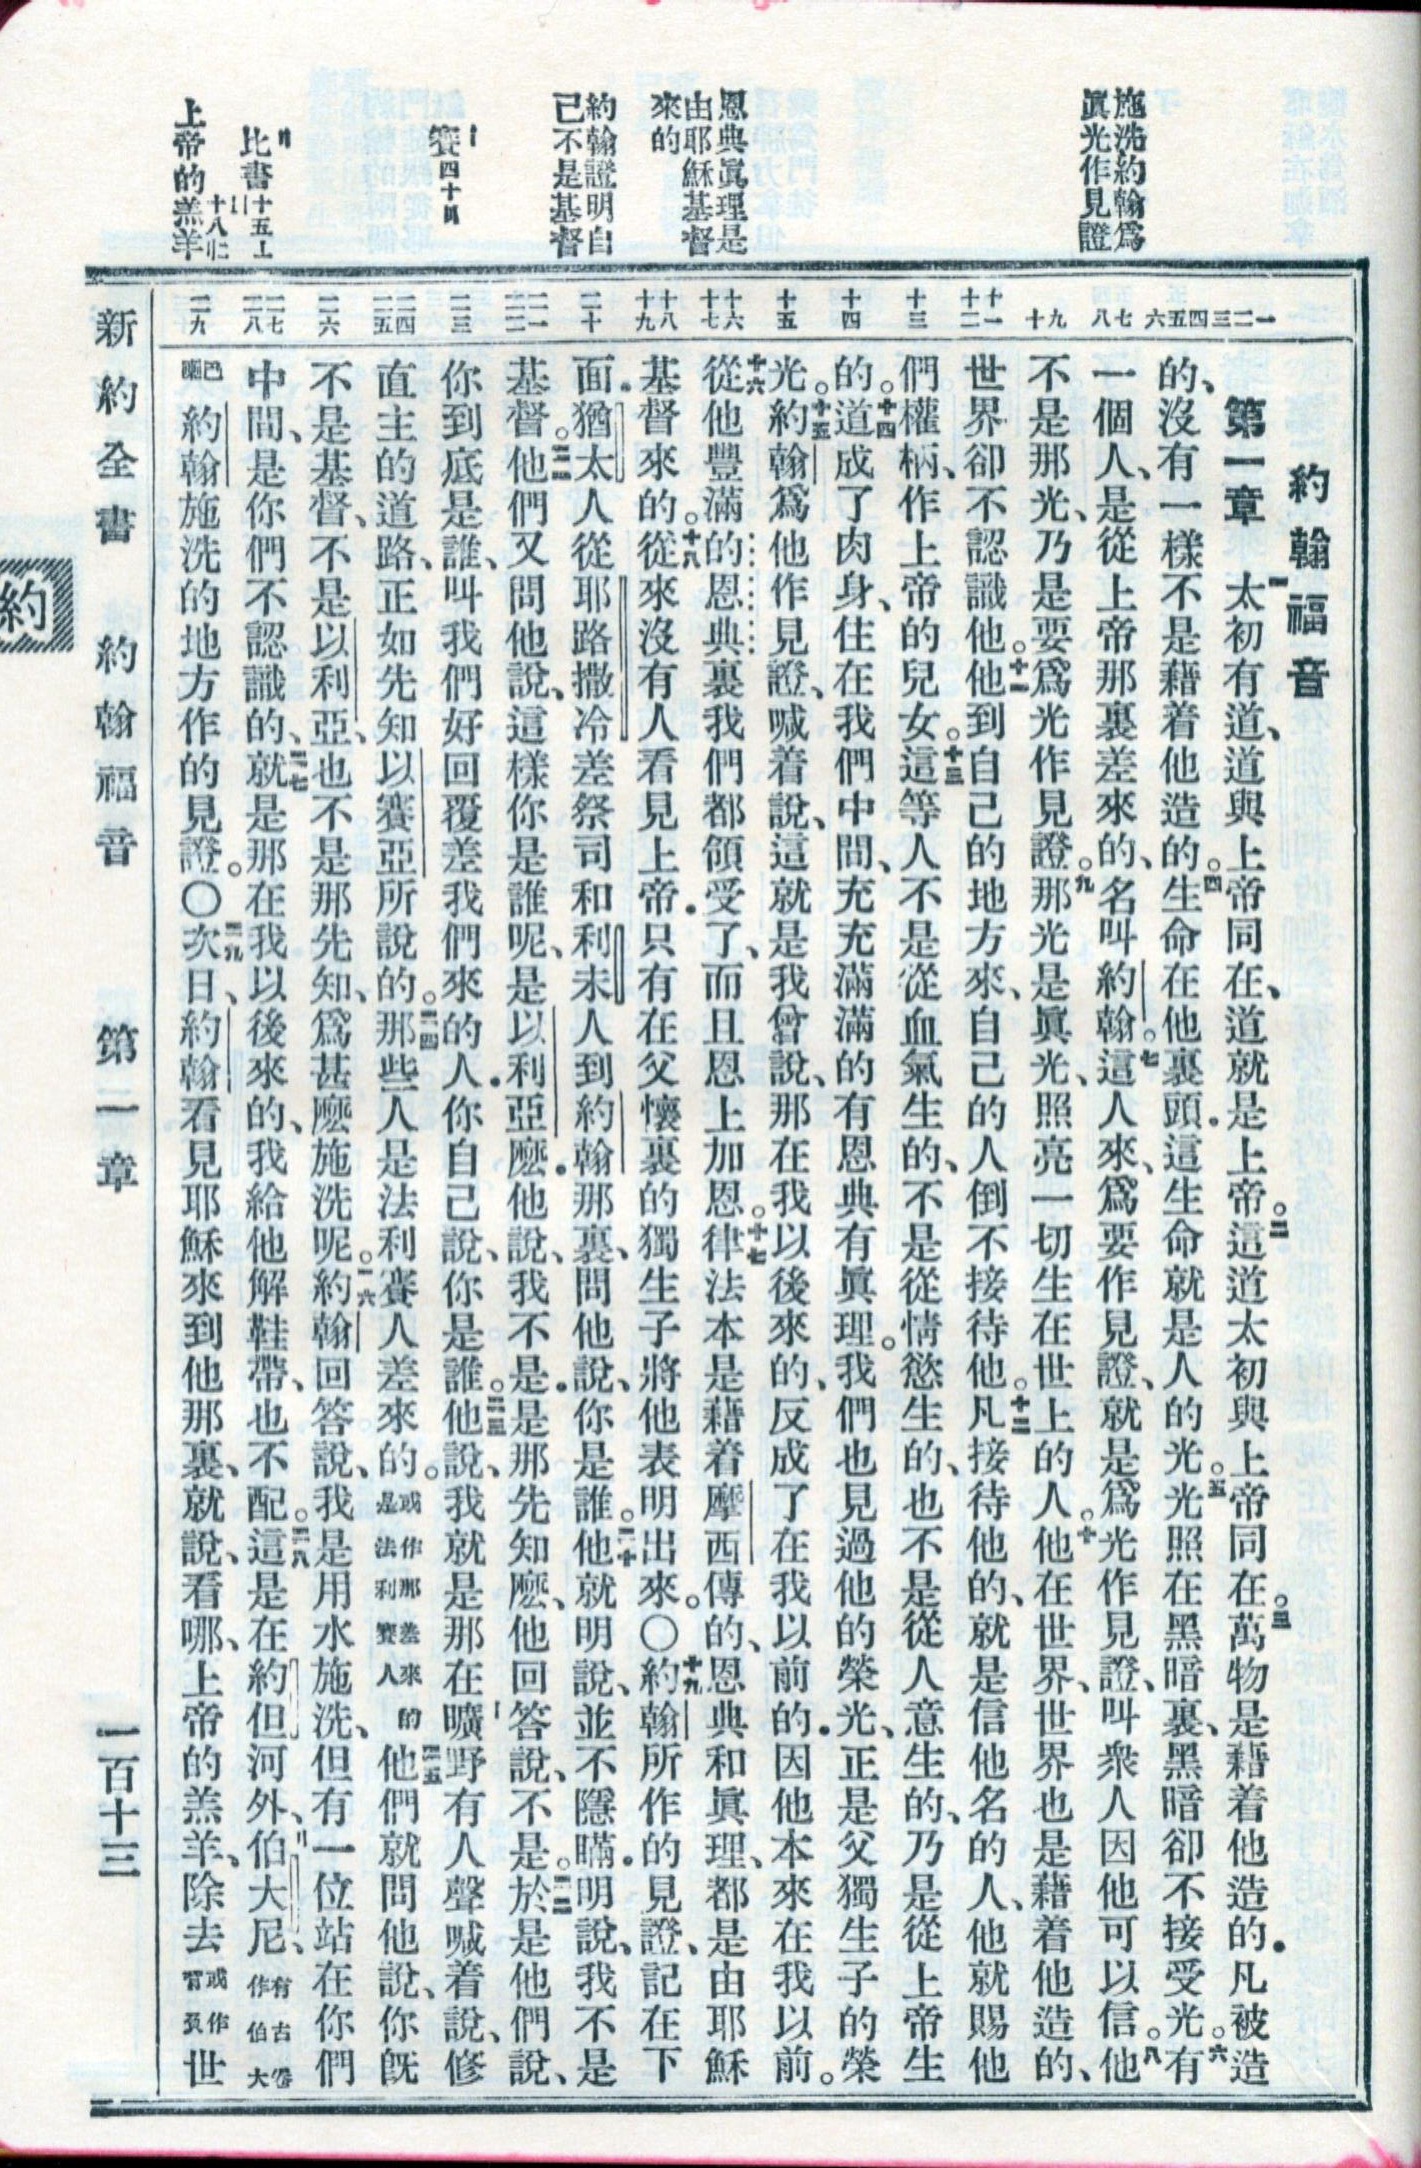 施洗約翰爲
眞光作見證
恩典眞理是
由耶穌基督
來的
約翰證明自
己不是基督
賽四十
比書十五
十八
上帝的羔羊
一二三四五六
七八
九十
十一十二
十三
十四
十五
十六十七
十八十九
二十
二一二二
二三
二四二五
二六
二七二八
二九
約翰福音
第一章 一太初有道、道與上帝同在、道就是上帝。二這道太初與上帝同在。三萬物是藉着他造的．凡被造
的、沒有一樣不是藉着他造的。四生命在他裏頭．這生命就是人的光。五光照在黑暗裏、黑暗卻不接受光。六有
一個人、是從上帝那裏差來的、名叫約翰。七這人來、爲要作見證、就是爲光作見證、叫衆人因他可以信。八他
不是那光、乃是要爲光作見證。九那光是眞光、照亮一切生在世上的人。十他在世界、世界也是藉着他造的、
世界卻不認識他。十一他到自己的地方來、自己的人倒不接待他。十二凡接待他的、就是信他名的人、他就賜他
們權柄、作上帝的兒女。十三這等人不是從血氣生的、不是從情慾生的、也不是從人意生的、乃是從上帝生
的。十四道成了肉身、住在我們中間、充充滿滿的有恩典有眞理。我們也見過他的榮光、正是父獨生子的榮
光。十五約翰爲他作見證、喊着說、這就是我曾說、那在我以後來的、反成了在我以前的．因他本來在我以前。
十六從他豐滿的恩典裏我們都領受了、而且恩上加恩。十七律法本是藉着摩西傳的、恩典和眞理、都是由耶穌
基督來的。十八從來沒有人看見上帝．只有在父懷裏的獨生子將他表明出來。〇十九約翰所作的見證、記在下
面．猶太人從耶路撒冷差祭司和利未人到約翰那裏、問他說、你是誰。二十他就明說、並不隱瞞．明說、我不是
基督。二一他們又問他說、這樣你是誰呢、是以利亞麽．他說、我不是．是那先知麽、他回答說、不是。二二於是他們說、
你到底是誰、叫我們好回覆差我們來的人．你自己說、你是誰。二三他說、我就是那在曠野有人聲喊着說、修
直主的道路、正如先知以賽亞所說的。二四那些人是法利賽人差來的。或作那差來的是法利賽人二五他們就問他說、你旣
不是基督、不是以利亞、也不是那先知、爲甚麽施洗呢。二六約翰回答說、我是用水施洗、但有一位站在你們
中間、是你們不認識的、二七就是那在我以後來的、我給他解鞋帶、也不配。二八這是在約但河外、伯大尼、有古卷作伯大
巴喇約翰施洗的地方作的見證。〇二九次日、約翰看見耶穌來到他那裏、就說、看哪、上帝的羔羊、除去或作背負世
新約全書 約翰福音 第一章 一百十三
約